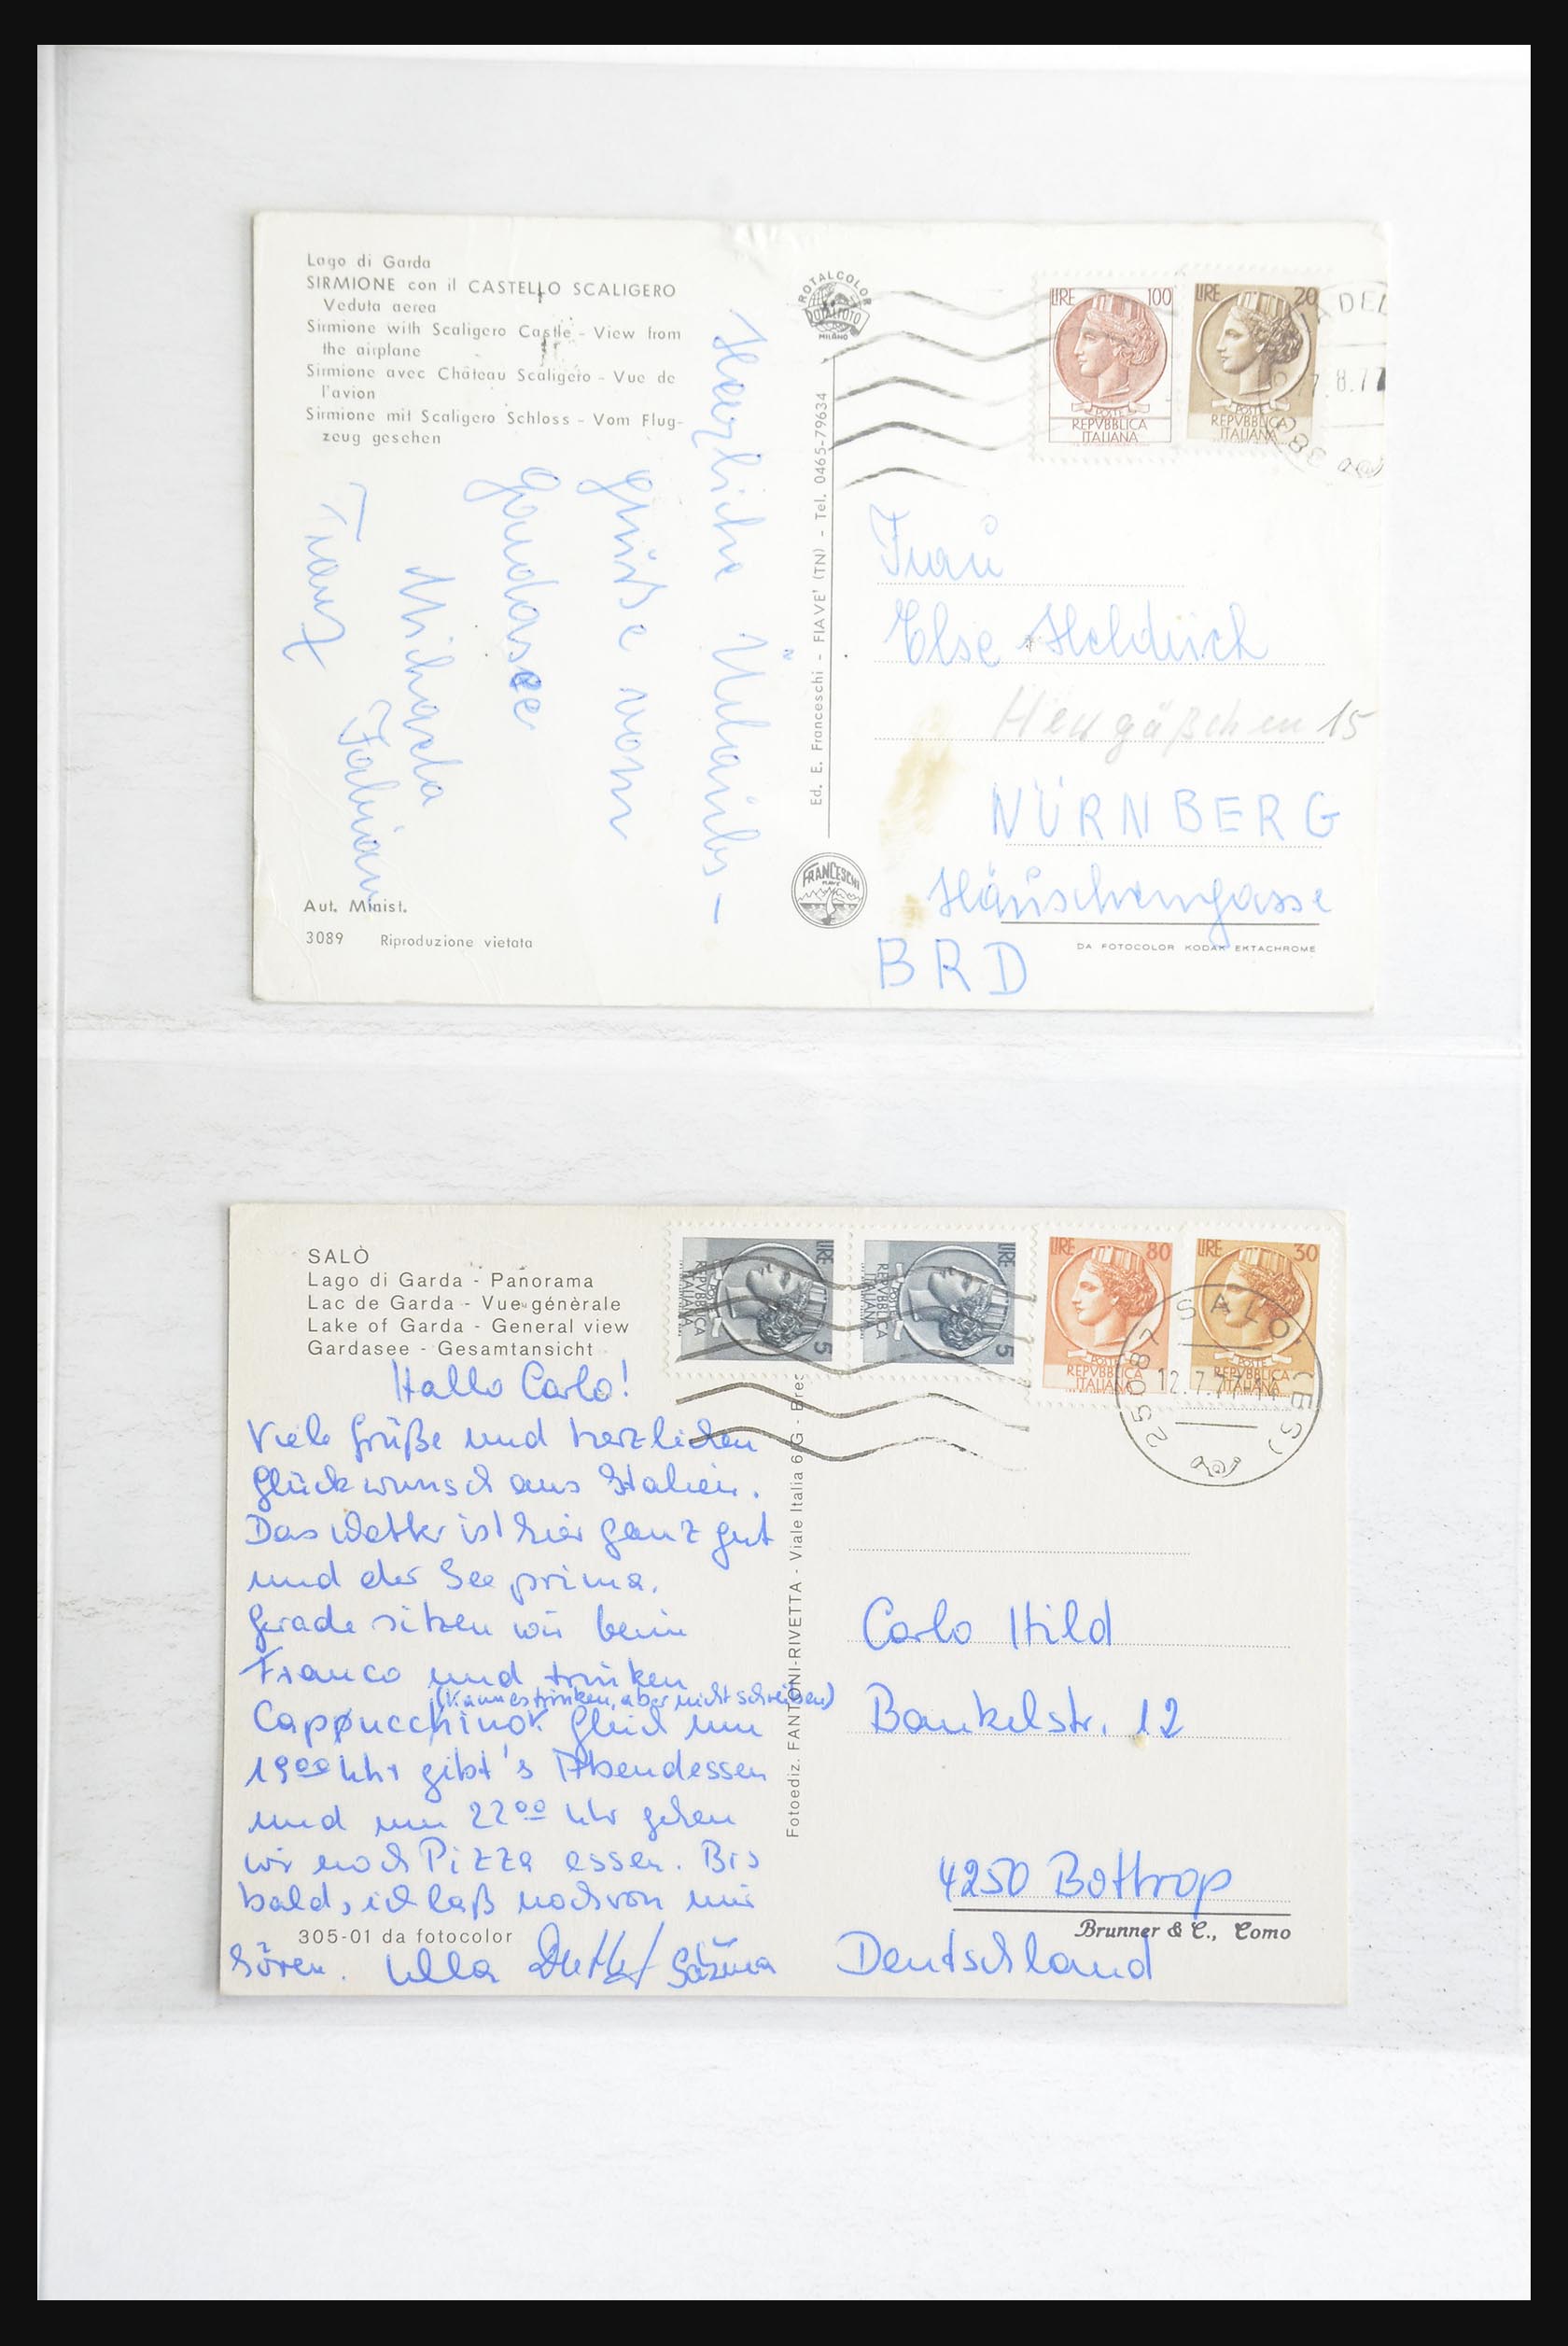 Lago di Garda
SIRMIONE con il CASTELLO SCALIGERO
Veduta aerea
Sirmione with Scaligero Castle - View from
the airplane
Sirmione avec Château Scaligero - Vue de
l'avion
Sirmione mit Scaligero Schloss - Vom Flug-
zeug gesehen
Herzliche Urlaubs-
grüße vom
Gardasee
Michaela
Fabian
Franz
Aut. Minist.
3089 Riproduzione vietata
ROTALCOLOR
ROTALFOTO
MILANO
Ed. E. Franceschi - FIAVE' (TN) - Tel. 0465-79634
FRANCESCHI
FIAVE
LIRE 100
POSTE
REPVBBLICA
ITALIANA
LIRE 20
POSTE
REPVBBLICA
ITALIANA
DEL
7.8.77
Frau
Else Heldrich
Heugäßchen 15
NÜRNBERG
Häuschengasse
BRD
DA FOTOCOLOR KODAK EKTACHROME
SALÒ
Lago di Garda - Panorama
Lac de Garda - Vue génèrale
Lake of Garda - General view
Gardasee - Gesamtansicht
LIRE 5
REPVBBLICA
ITALIANA
LIRE 5
REPVBBLICA
ITALIANA
LIRE 80
POSTE
REPVBBLICA
ITALIANA
LIRE 30
POSTE
REPVBBLICA
ITALIANA
25087 SALO (BS)
12.7.77
Hallo Carlo!
Viele Grüße und herzlichen
Glückwunsch aus Italien.
Das Wetter ist hier ganz gut
und der See prima.
Gerade sitzen wir beim
Franco und trinken
(Kann es trinken, aber nicht schreiben)
Cappucchino. Gleich um
19 00 Uhr gibt's Abendessen
und um 22 00 Uhr gehen
wir noch Pizza essen. Bis
bald, ich laß noch von mir
hören. Ulla
305-01 da fotocolor
Fotoediz. FANTONI-RIVETTA - Viale Italia 6/G - Bres
Carlo Hild
Bankelstr. 12
4250 Bottrop
Brunner & C., Como
Deutschland